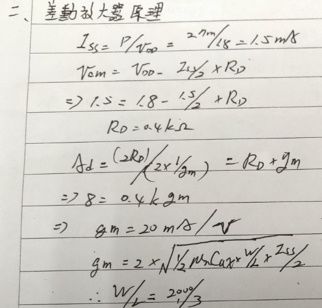 二、差動放大器原理
Iss = P/VDD = 2.7m/1.8 = 1.5mA
Vom = VDD - Iss/2 × RD
=> 1.5 = 1.8 - 1.5/2 * RD
RD = 0.4kΩ
Ad = (2RD)/(2×1/gm) = RD * gm
=> 8 = 0.4k gm
=> gm = 20 mA/V
gm = 2 × √(1/2 μnCox × W/L × Iss/2)
∴ W/L = 2000/3